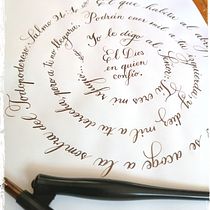 El que habita al
se acoge a la sombra del Todopoderoso. Salmo
Podrán caer mil a tu izquierda, y
diez mil a tu derecha, pero a ti no te llegará.
Yo le digo al Señor: Tú eres mi refugio,
El Dios
en quien
confío.